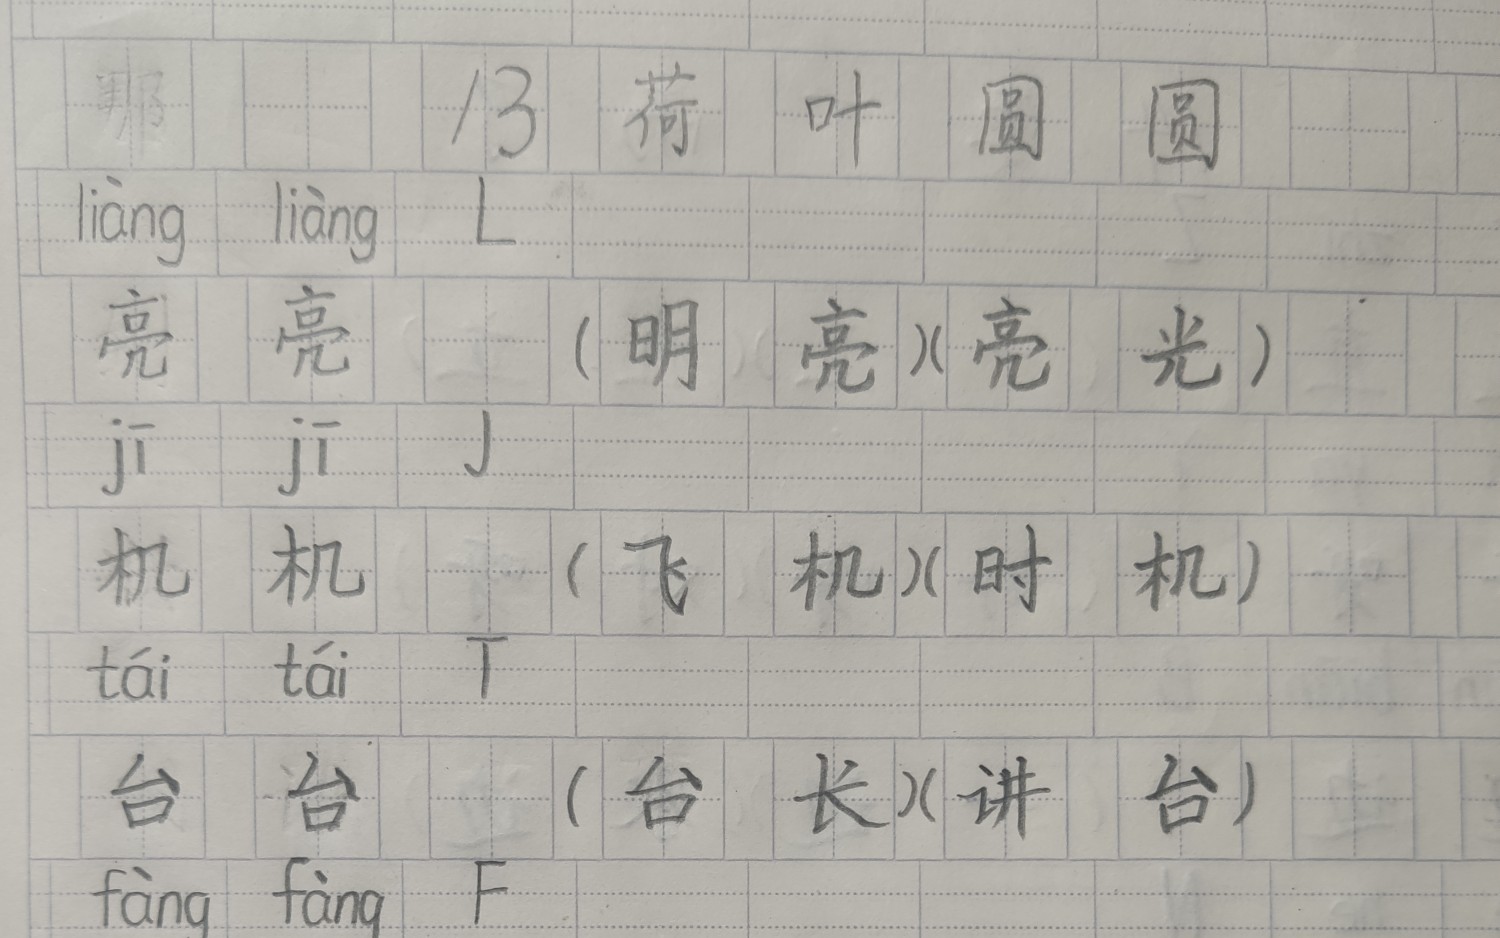 13 荷叶圆圆
liàng liàng L
亮 亮 (明亮)(亮光)
jī jī J
机 机 (飞机)(时机)
tái tái T
台 台 (台长)(讲台)
fàng fàng F